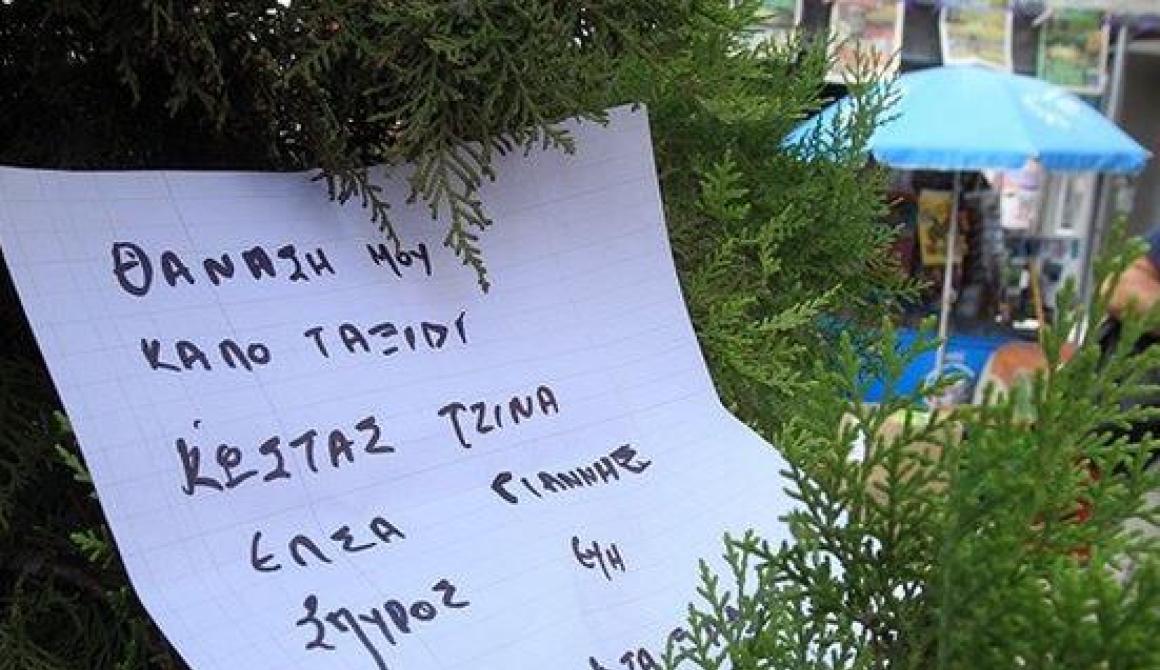 ΘΑΝΑΣΗ ΜΟΥ
ΚΑΛΟ ΤΑΞΙΔΙ
ΚΩΣΤΑΣ ΤΖΙΝΑ
ΕΛΣΑ ΓΙΑΝΝΗΣ
ΣΠΥΡΟΣ ΕΥΗ